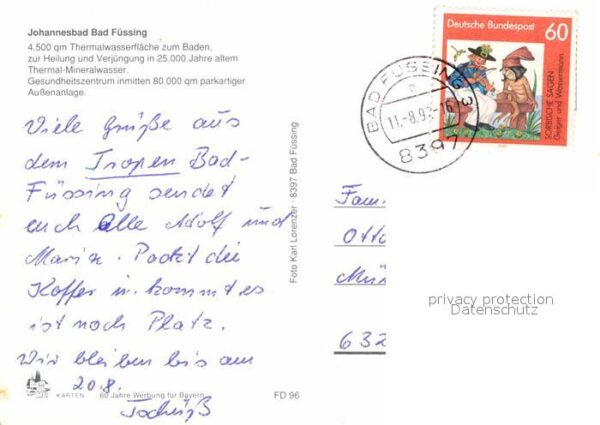 Johannesbad Bad Füssing
4.500 qm Thermalwasserfläche zum Baden,
zur Heilung und Verjüngung in 25.000 Jahre altem
Thermal-Mineralwasser.
Gesundheitszentrum inmitten 80.000 qm parkartiger
Außenanlage.
Viele Grüße aus
dem Tropen Bad-
Füssing sendet
euch Alle Adolf und
Maria. Packt die
Koffer u. kommt es
ist noch Platz.
Wir bleiben bis am
20.8.
Tschüß
KARTEN
60 Jahre Werbung für Bayern
FD 96
Foto Karl Lorenzer · 8397 Bad Füssing
Deutsche Bundespost
60
SORBISCHE SAGEN
Geiger und Wassermann
BAD FÜSSING 3
11.-8.92-16
8397
Fam.
Otto
632
privacy protection
Datenschutz